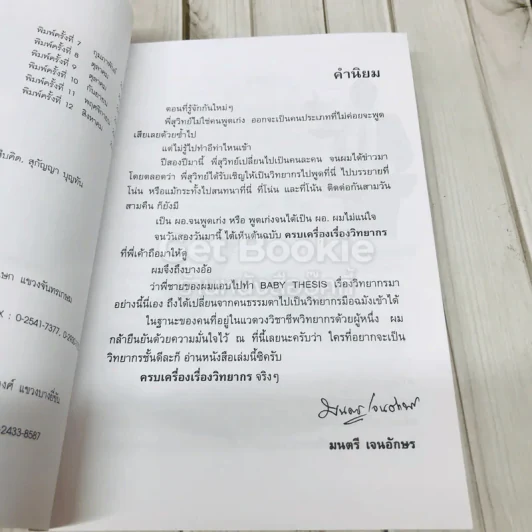 พิมพ์ครั้งที่ 7 กุมภาพันธ์
พิมพ์ครั้งที่ 8 ตุลาคม
พิมพ์ครั้งที่ 9 ตุลาคม
พิมพ์ครั้งที่ 10 กันยายน
พิมพ์ครั้งที่ 11 พฤศจิกายน
พิมพ์ครั้งที่ 12 สิงหาคม
สุกัญญา บุญทัน
แขวงจันทรเกษม
0-2541-7377,
แขวงบางยี่ขัน
-2433-8587
คำนิยม
ตอนที่รู้จักกันใหม่ๆ
พี่สุวิทย์ไม่ใช่คนพูดเก่ง ออกจะเป็นคนประเภทที่ไม่ค่อยจะพูด
เสียเลยด้วยซ้ำไป
แต่ไม่รู้ไปทำอีท่าไหนเข้า
ปีสองปีมานี้ พี่สุวิทย์เปลี่ยนไปเป็นคนละคน จนผมได้ข่าวมา
โดยตลอดว่า พี่สุวิทย์ได้รับเชิญให้เป็นวิทยากรไปพูดที่นี่ ไปบรรยายที่
โน่น หรือแม้กระทั่งไปสนทนาที่นี่ ที่โน่น และที่โน้น ติดต่อกันสามวัน
สามคืน ก็ยังมี
เป็น ผอ.จนพูดเก่ง หรือ พูดเก่งจนได้เป็น ผอ. ผมไม่แน่ใจ
จนวันสองวันมานี้ ได้เห็นต้นฉบับ ครบเครื่องเรื่องวิทยากร
ที่พี่เค้าถือมาให้ดู
ผมจึงถึงบางอ้อ
ว่าพี่ชายของผมแอบไปทำ BABY THESIS เรื่องวิทยากรมา
อย่างนี้นี่เอง ถึงได้เปลี่ยนจากคนธรรมดาไปเป็นวิทยากรมือฉมังเข้าได้
ในฐานะของคนที่อยู่ในแวดวงวิชาชีพวิทยากรด้วยผู้หนึ่ง ผม
กล้ายืนยันด้วยความมั่นใจไว้ ณ ที่นี้เลยนะครับว่า ใครที่อยากจะเป็น
วิทยากรชั้นดีละก็ อ่านหนังสือเล่มนี้ซิครับ
ครบเครื่องเรื่องวิทยากร จริงๆ
มนตรี เจนอักษร
มนตรี เจนอักษร
et Bookie